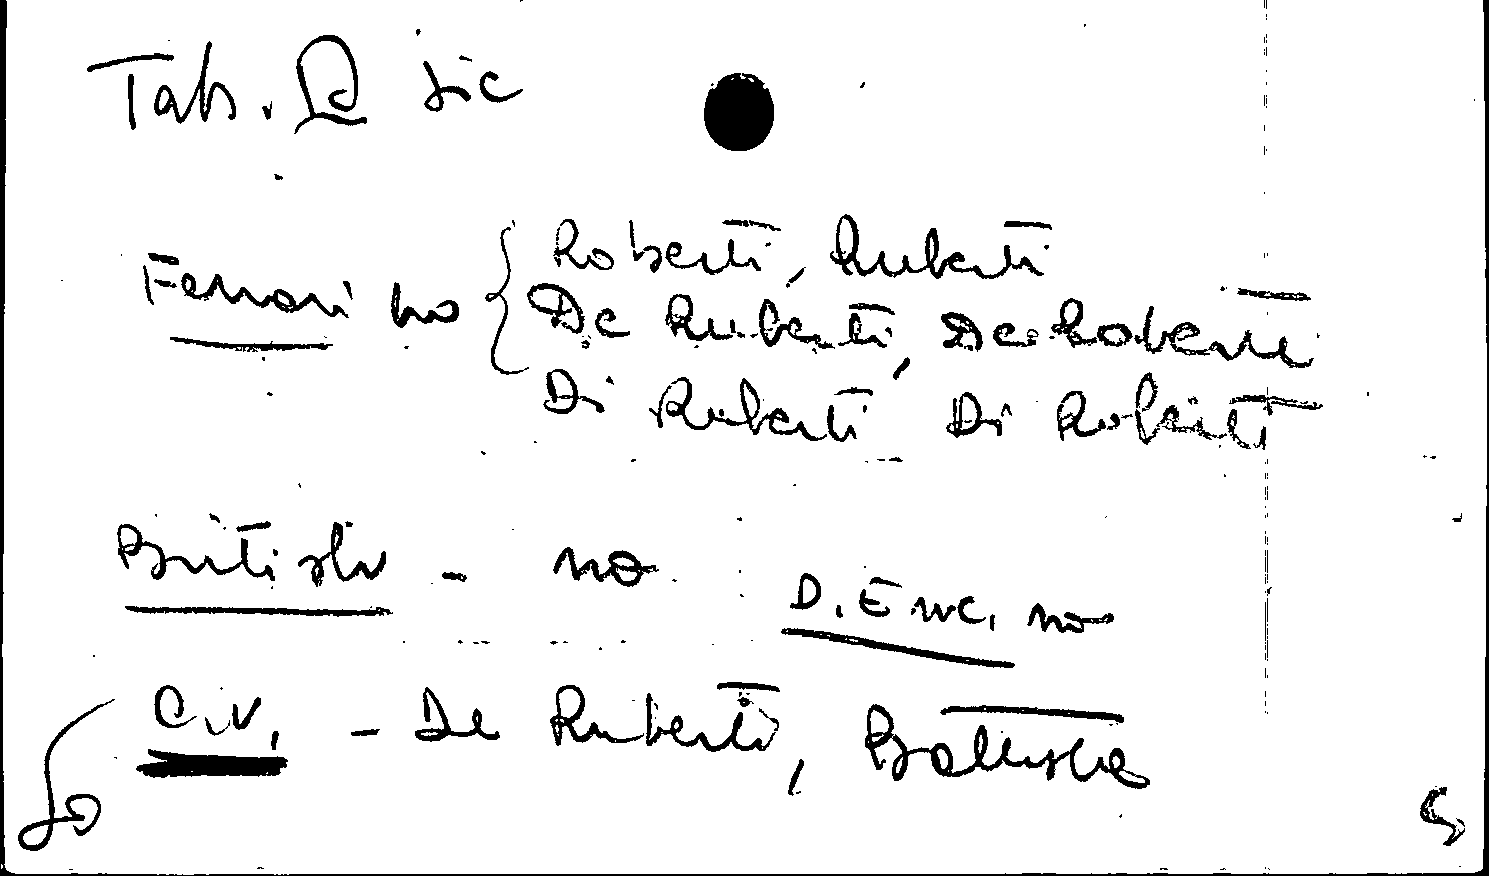 Tab. sic
Ferrari no { Roberti, Ruberti
De Ruberti, De Roberti
Di Ruberti Di Roberti
British - no
D. Enc. no
C.V. - De Ruberti, Battista